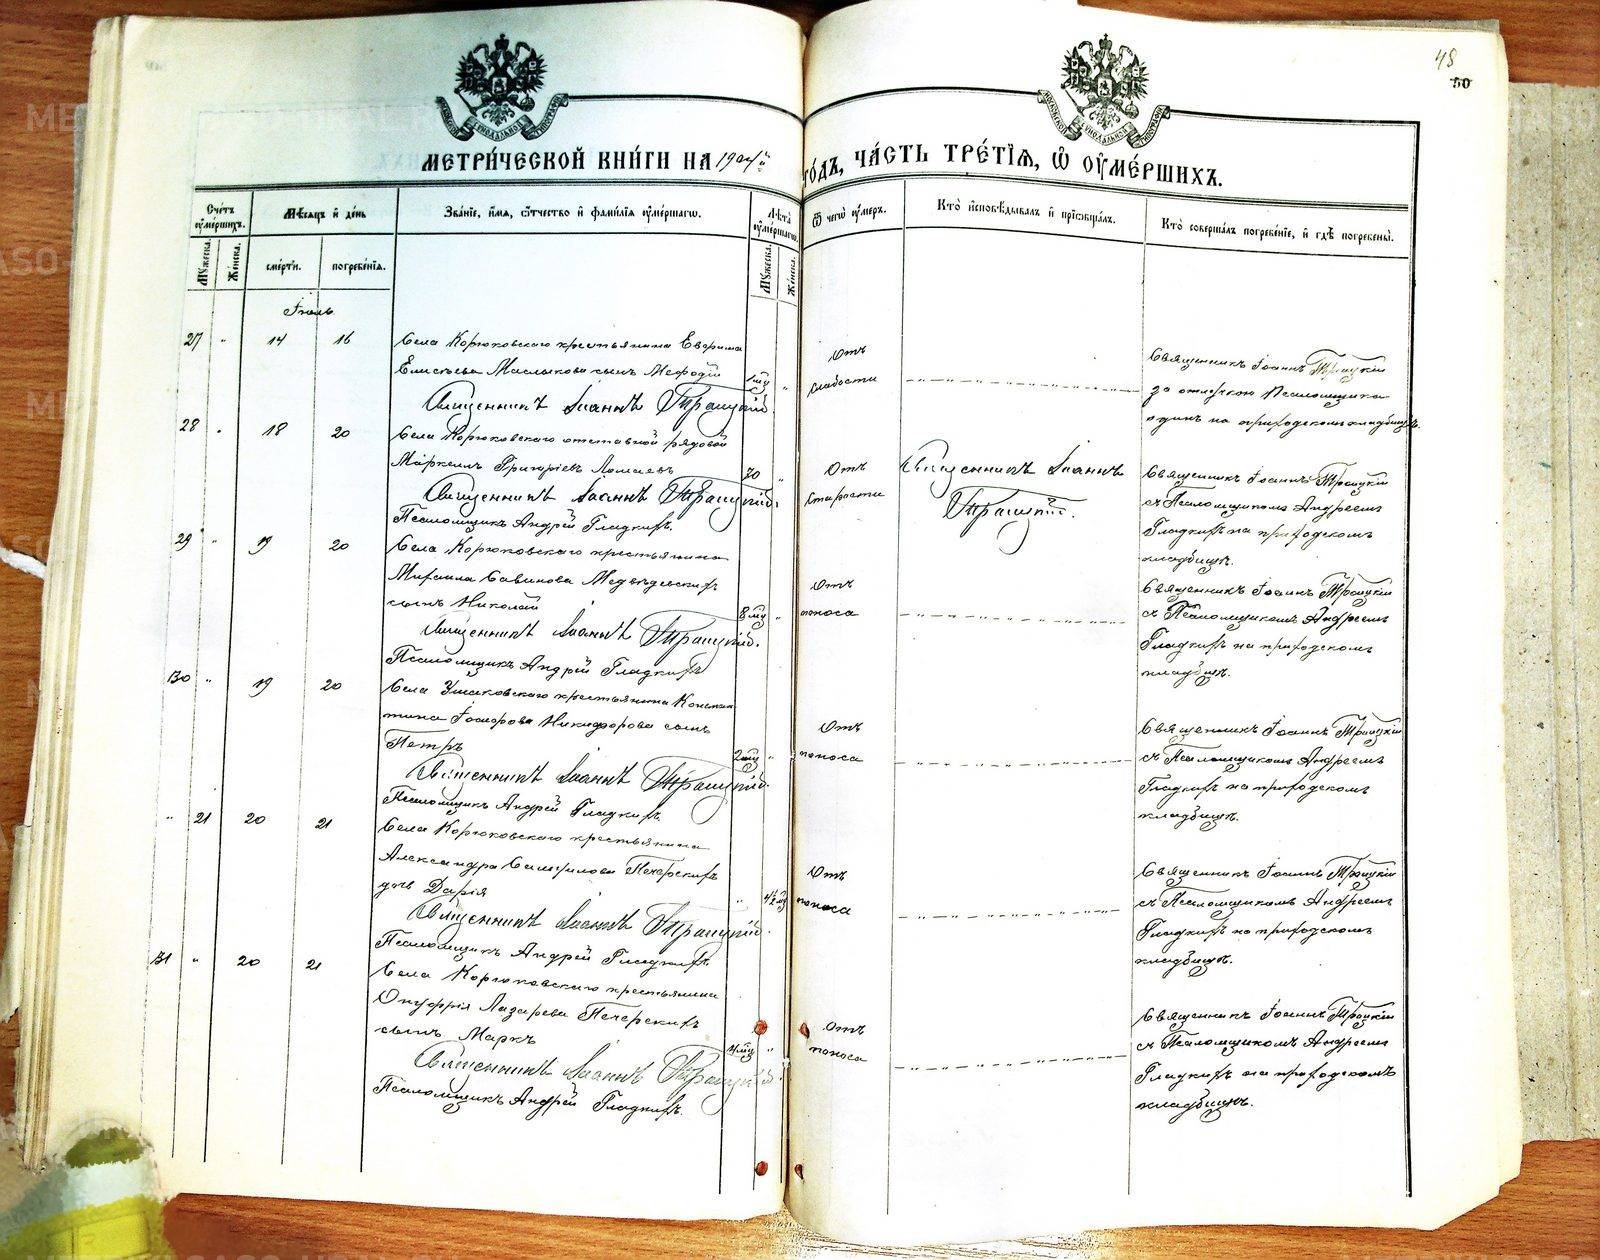 48
50
МЕТРИ́ЧЕСКОЙ КНИ́ГИ НА 1904й
ГО́ДЪ, ЧА́СТЬ ТРЕ́ТІѦ, Ѡ҆ ОУ҆МЕ́РШИХЪ.
Сче́тъ оу҆ме́ршихъ.
Мѣ́сѧцъ и҆ де́нь
Зва́ніе, и҆́мѧ, ѻ҆́тчество и҆ фами́лїѧ оу҆ме́ршагѡ.
Лѣ́та оу҆ме́ршагѡ.
Ѿ чегѡ̀ оу҆́меръ.
Кто̀ и҆сповѣ́дывалъ и҆ прїѡбща́лъ.
Кто̀ соверша́лъ погребе́нїе, и҆ гдѣ̀ погребены̀.
Мꙋ́жеска.
Же́нска.
сме́рти.
погребе́нїѧ.
Мꙋ́жеска.
Же́нска.
Іюль
27 " 14 16
Села Корюковскаго крестьянина Евфима
Елисѣева Маслыкова сынъ Меѳодій
Священникъ Іоаннъ Троицкій.
1 мц "
Отъ
слабости
Священникъ Іоаннъ Троицкій
за отлучкою Псаломщика
одинъ на приходскомъ кладбищѣ.
28 " 18 20
Села Корюковскаго отставной рядовой
Маркеллъ Григоріевъ
Священникъ Іоаннъ Троицкій.
Псаломщикъ Андрей Гладкихъ.
70 "
Отъ
старости
Священникъ Іоаннъ
Троицкій.
Священникъ Іоаннъ Троицкій
съ Псаломщикомъ Андреемъ
Гладкихъ на приходскомъ
кладбищѣ.
29 " 19 20
Села Корюковскаго крестьянина
Михаила Савинова Медвѣдевскихъ
сынъ Николай
Священникъ Іоаннъ Троицкій.
Псаломщикъ Андрей Гладкихъ
8 мц "
Отъ
поноса
Священникъ Іоаннъ Троицкій
съ Псаломщикомъ Андреемъ
Гладкихъ на приходскомъ
кладбищѣ.
30 " 19 20
Села Ушаковскаго крестьянина Констан
тина Іосифова Никифорова сынъ
Петръ
Священникъ Іоаннъ Троицкій.
Псаломщикъ Андрей Гладкихъ.
2 мц "
Отъ
поноса
Священникъ Іоаннъ Троицкій
съ Псаломщикомъ Андреемъ
Гладкихъ на приходскомъ
кладбищѣ.
" 21 20 21
Села Корюковскаго крестьянина
Александра Самуилова Печерскихъ
дочь Дарія
Священникъ Іоаннъ Троицкій.
Псаломщикъ Андрей Гладкихъ
" 4½ мц
Отъ
поноса
Священникъ Іоаннъ Троицкій
съ Псаломщикомъ Андреемъ
Гладкихъ на приходскомъ
кладбищѣ.
31 " 20 21
Села Корюковскаго крестьянина
Онуфрія Лазарева Печерскихъ
сынъ Маркъ
Священникъ Іоаннъ Троицкій.
Псаломщикъ Андрей Гладкихъ.
4 мц "
Отъ
поноса
Священникъ Іоаннъ Троицкій
съ Псаломщикомъ Андреемъ
Гладкихъ на приходскомъ
кладбищѣ.